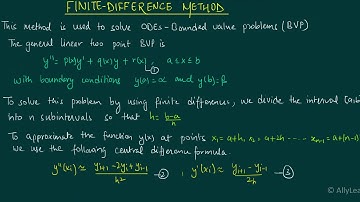 FINITE-DIFFERENCE METHOD
This method is used to solve ODEs-Bounded value problems (BVP)
The general linear two point BVP is
y'' = p(x)y' + q(x)y + r(x), a≤x≤b
①
with boundary conditions y(a)=α and y(b)=β
To solve this problem by using finite difference, we divide the interval [a,b]
into n subintervals so that h = b-a/n
To approximate the function y(x) at points x₁ = a+h, x₂ = a+2h ..... xₙ₋₁ = a+(n-1)
we use the following central difference formula
y''(xi) ≈ yi+1 -2yi + yi-1 / h² -②, y'(xi) ≈ yi+1 - yi-1 / 2h -③
© AllyLea